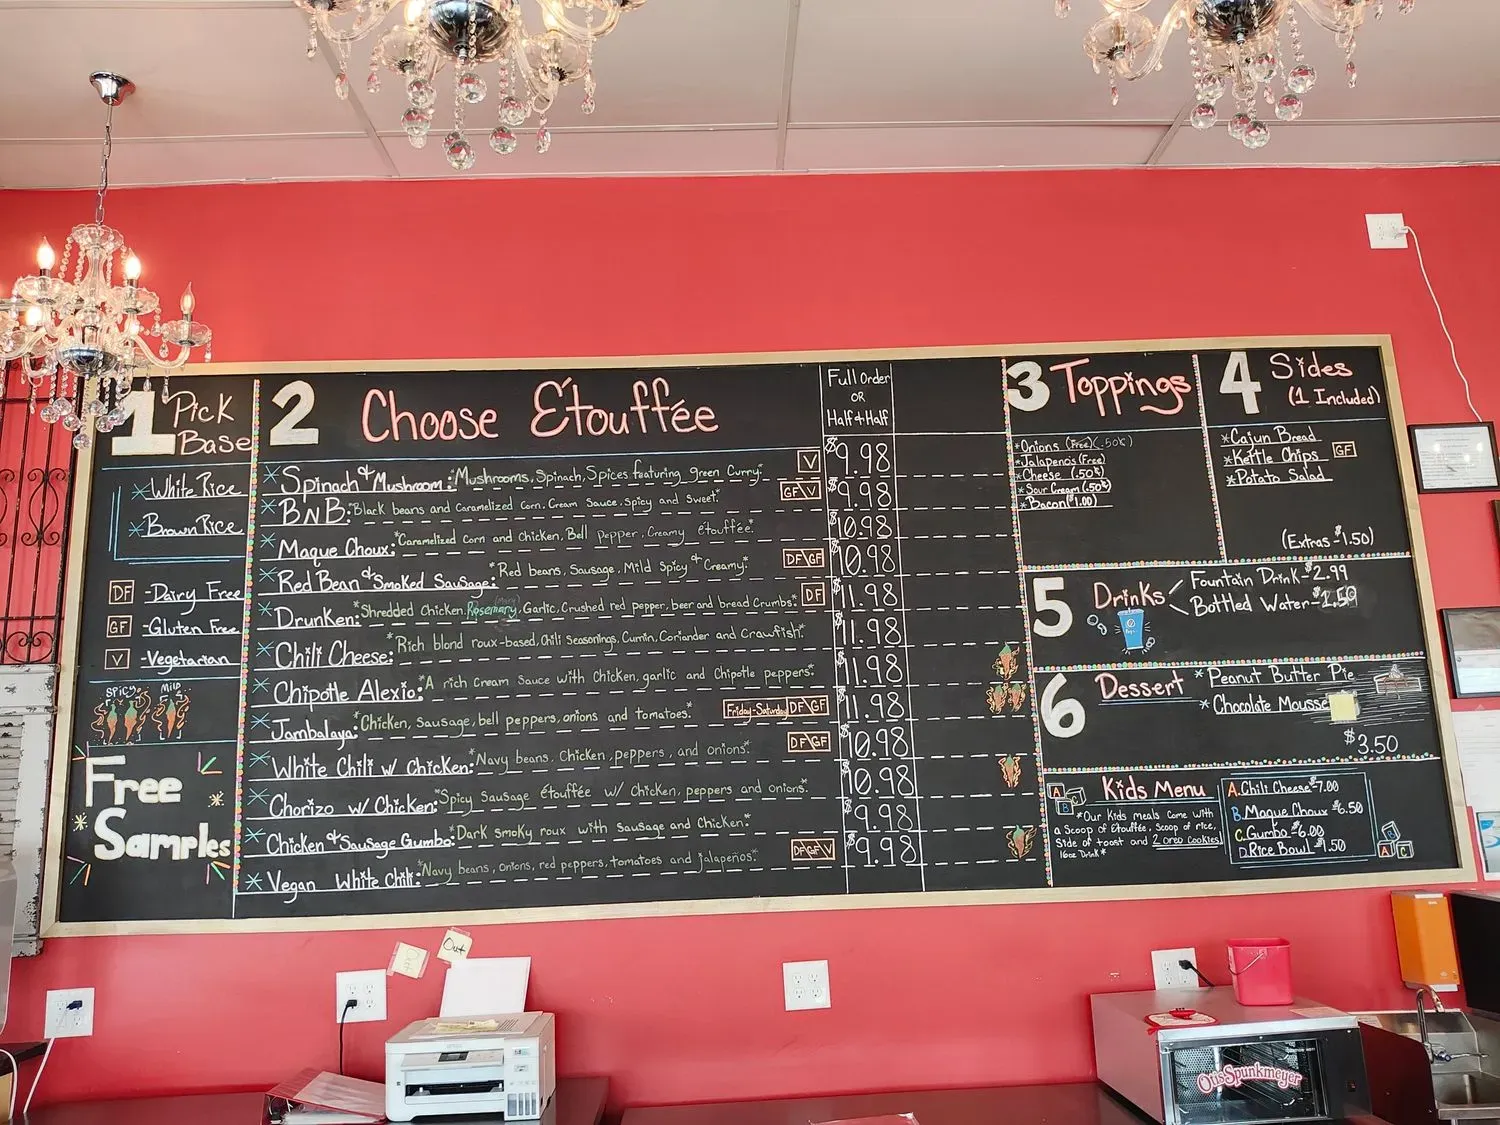 1 Pick
Base
*White Rice
*Brown Rice
DF -Dairy Free
GF -Gluten Free
V -Vegetarian
Spicy Mild
Free
Samples
2 Choose Étouffée
Full Order
OR
Half & Half
*Spinach & Mushroom: Mushrooms, Spinach, Spices featuring green Curry. V $9.98
*BNB: "Black beans and Caramelized Corn, Cream Sauce, Spicy and Sweet" GF\V $9.98
*Maque Choux: "Caramelized Corn and Chicken, Bell Pepper, Creamy étouffée." $10.98
*Red Bean & Smoked Sausage: "Red beans, Sausage, Mild Spicy & Creamy." DF\GF $10.98
*Drunken: "Shredded Chicken, Rosemary, Garlic, Crushed red pepper, beer and bread Crumbs." DF $11.98
*Chili Cheese: "Rich blond roux-based, Chili Seasonings, Cumin, Coriander and Crawfish." $11.98
*Chipotle Alexio: "A rich cream sauce with Chicken, garlic and Chipotle peppers." $11.98
*Jambalaya: "Chicken, sausage, bell peppers, onions and tomatoes." Friday-Saturday DF\GF $11.98
*White Chili w/ Chicken: "Navy beans, Chicken, peppers, and onions." DF\GF $10.98
*Chorizo w/ Chicken: "Spicy Sausage étouffée w/ Chicken, peppers and onions." $10.98
*Chicken & Sausage Gumbo: "Dark smoky roux with sausage and Chicken." $9.98
*Vegan White Chili: "Navy beans, onions, red peppers, tomatoes and jalapeños." DF\GF\V $9.98
3 Toppings
*Onions (Free) (.50¢)
*Jalapenos (Free)
*Cheese (.50¢)
*Sour Cream (.50¢)
*Bacon ($1.00)
4 Sides
(1 Included)
*Cajun Bread
*Kettle Chips GF
*Potato Salad
(Extras $1.50)
5 Drinks
Fountain Drink-$2.99
Bottled Water-$1.50
6 Dessert *Peanut Butter Pie
*Chocolate Mousse
$3.50
Kids Menu
A B C
*Our Kids meals come with
a Scoop of Étouffée, Scoop of rice,
Side of toast and 2 oreo cookies
16oz Drink*
A.Chili Cheese $7.00
B.Maque Choux $6.50
C.Gumbo $6.00
D.Rice Bowl $1.50
A B C
Out
Out
Otis Spunkmeyer